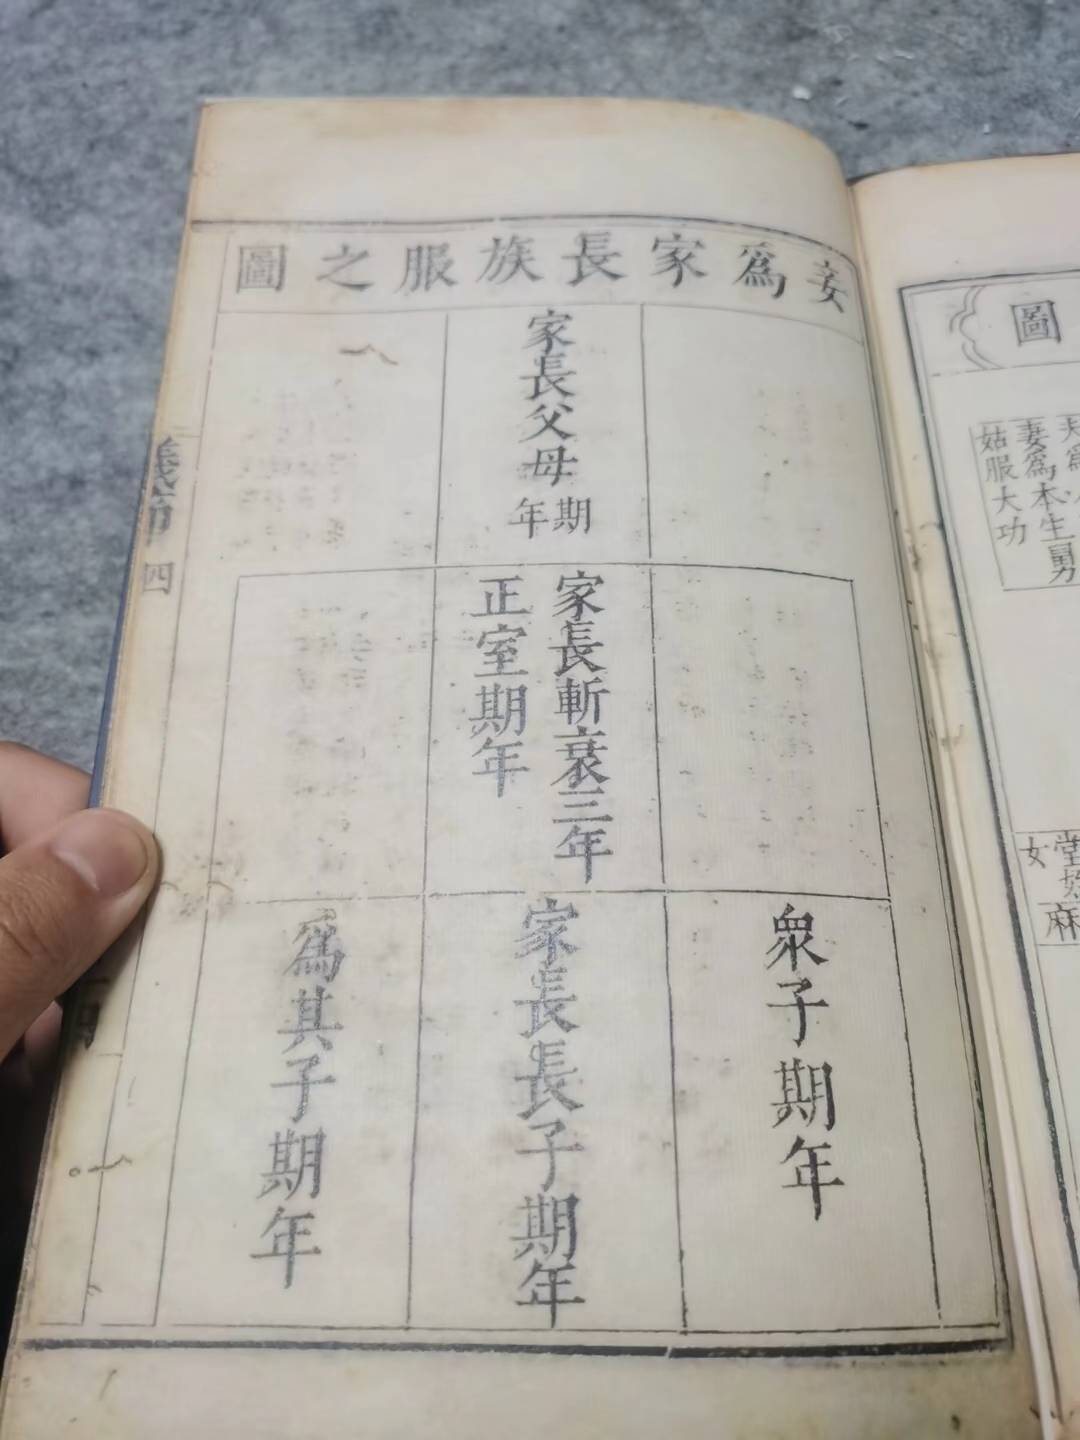 妾爲家長族服之圖
家長父母期年
家長斬衰三年
正室期年
衆子期年
家長長子期年
爲其子期年
儀節
四
圖
妻爲本生舅
姑服大功
堂
女
麻